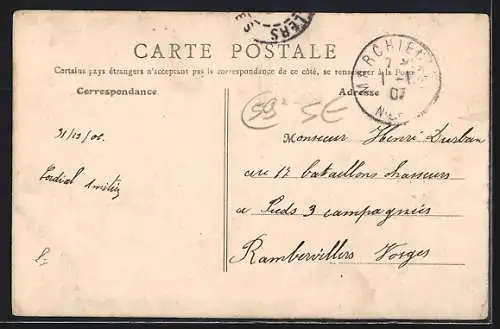 CARTE POSTALE
Certains pays étrangers n'acceptant pas la correspondance de ce côté, se renseigner à la Poste
Correspondance
Adresse
MARCHIEN
1 - 1
07
59² 5E
31/12/06.
Monsieur Henri Durban
17 bataillons chasseurs
a Pieds 3 campagnies
Rambervillers Vosges